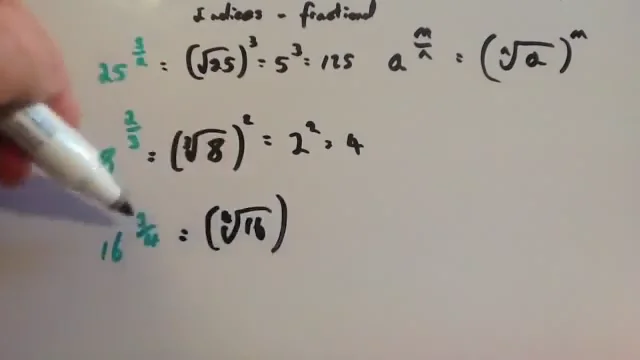 Indices - fractional
25^(3/2) = (√25)^3 = 5^3 = 125 a^(m/n) = (ⁿ√a)^m
8^(2/3) = (³√8)^2 = 2^2 = 4
16^(3/4) = (⁴√16)